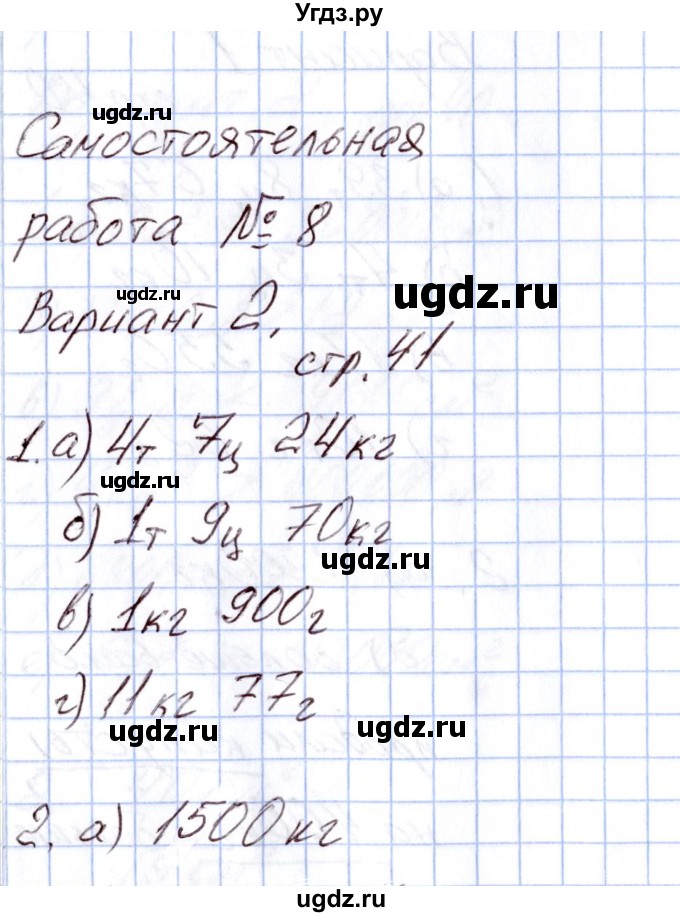 Угдз.ру
ugdz.ru
Самостоятельная
работа № 8
ugdz.ru
ugdz.ru
Вариант 2,
стр. 41
1. а) 4т 7ц 24кг
ugdz.ru
б) 1т 9ц 70кг
ugdz.ru
в) 1кг 900г
г) 11кг 77г
ugdz.ru
ugdz.ru
2. а) 1500кг
ugdz.ru